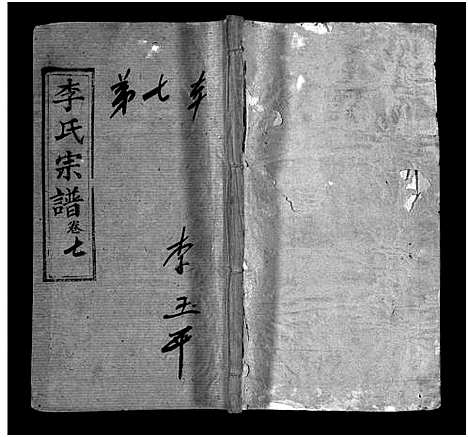 李氏宗譜卷七
第七本
李玉平